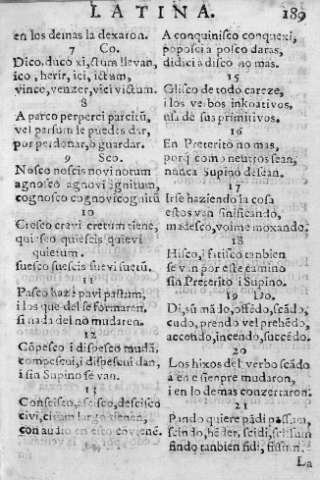 LATINA. 189
en los demas la dexaron.
7 Co.
Dico, duco xi, ctum llevan,
ico, herir, ici, ictum,
vinco, venzer, vici victum.
8
A parco peperci parcitũ,
vel parsum le puedes dar,
por perdonar, ò guardar.
9 Sco.
Nosco noscis novi notum
agnosco agnovi agnitum,
cognosco cognovi cognitum
10
Cresco crevi cretum tiene,
quiesco quiescis quievi
quietum.
suesco suescis suevi suetũ.
11
Pasco haze pavi pastum,
i los que del se formaren,
si nada del no mudaren.
12
Cõpesco i dispesco mudã,
compescui, i dispescui dan,
i sin Supino se van.
13
Conscisco, ascisco, descisco
civi, citum largo tienen,
con
A conquinisco conquexi,
poposci a posco daras,
didici a disco no mas.
15
Glisco de todo careze,
i los verbos inkoativos,
usa de sus primitivos.
16
En Preterito no mas,
porq̃ como neutros sean,
nunca Supino desean.
17
Irse haziendo la cosa
estos van sinificando,
madesco, voime moxando.
18
Hisco, i fatisco tanbien
se van por este camino
sin Preterito i Supino.
19 Do.
Di, su mã do, offẽdo, scãdo,
cudo, prendo vel prehẽdo,
accendo, incendo, succẽdo.
20
Los hixos del verbo scãdo
a en e sienpre mudaron,
i en lo demas conzertaron.
21
Pando quiere pãdi passum,
scindo, scidi, scissum
findo tanbien fidi, fissum.
La